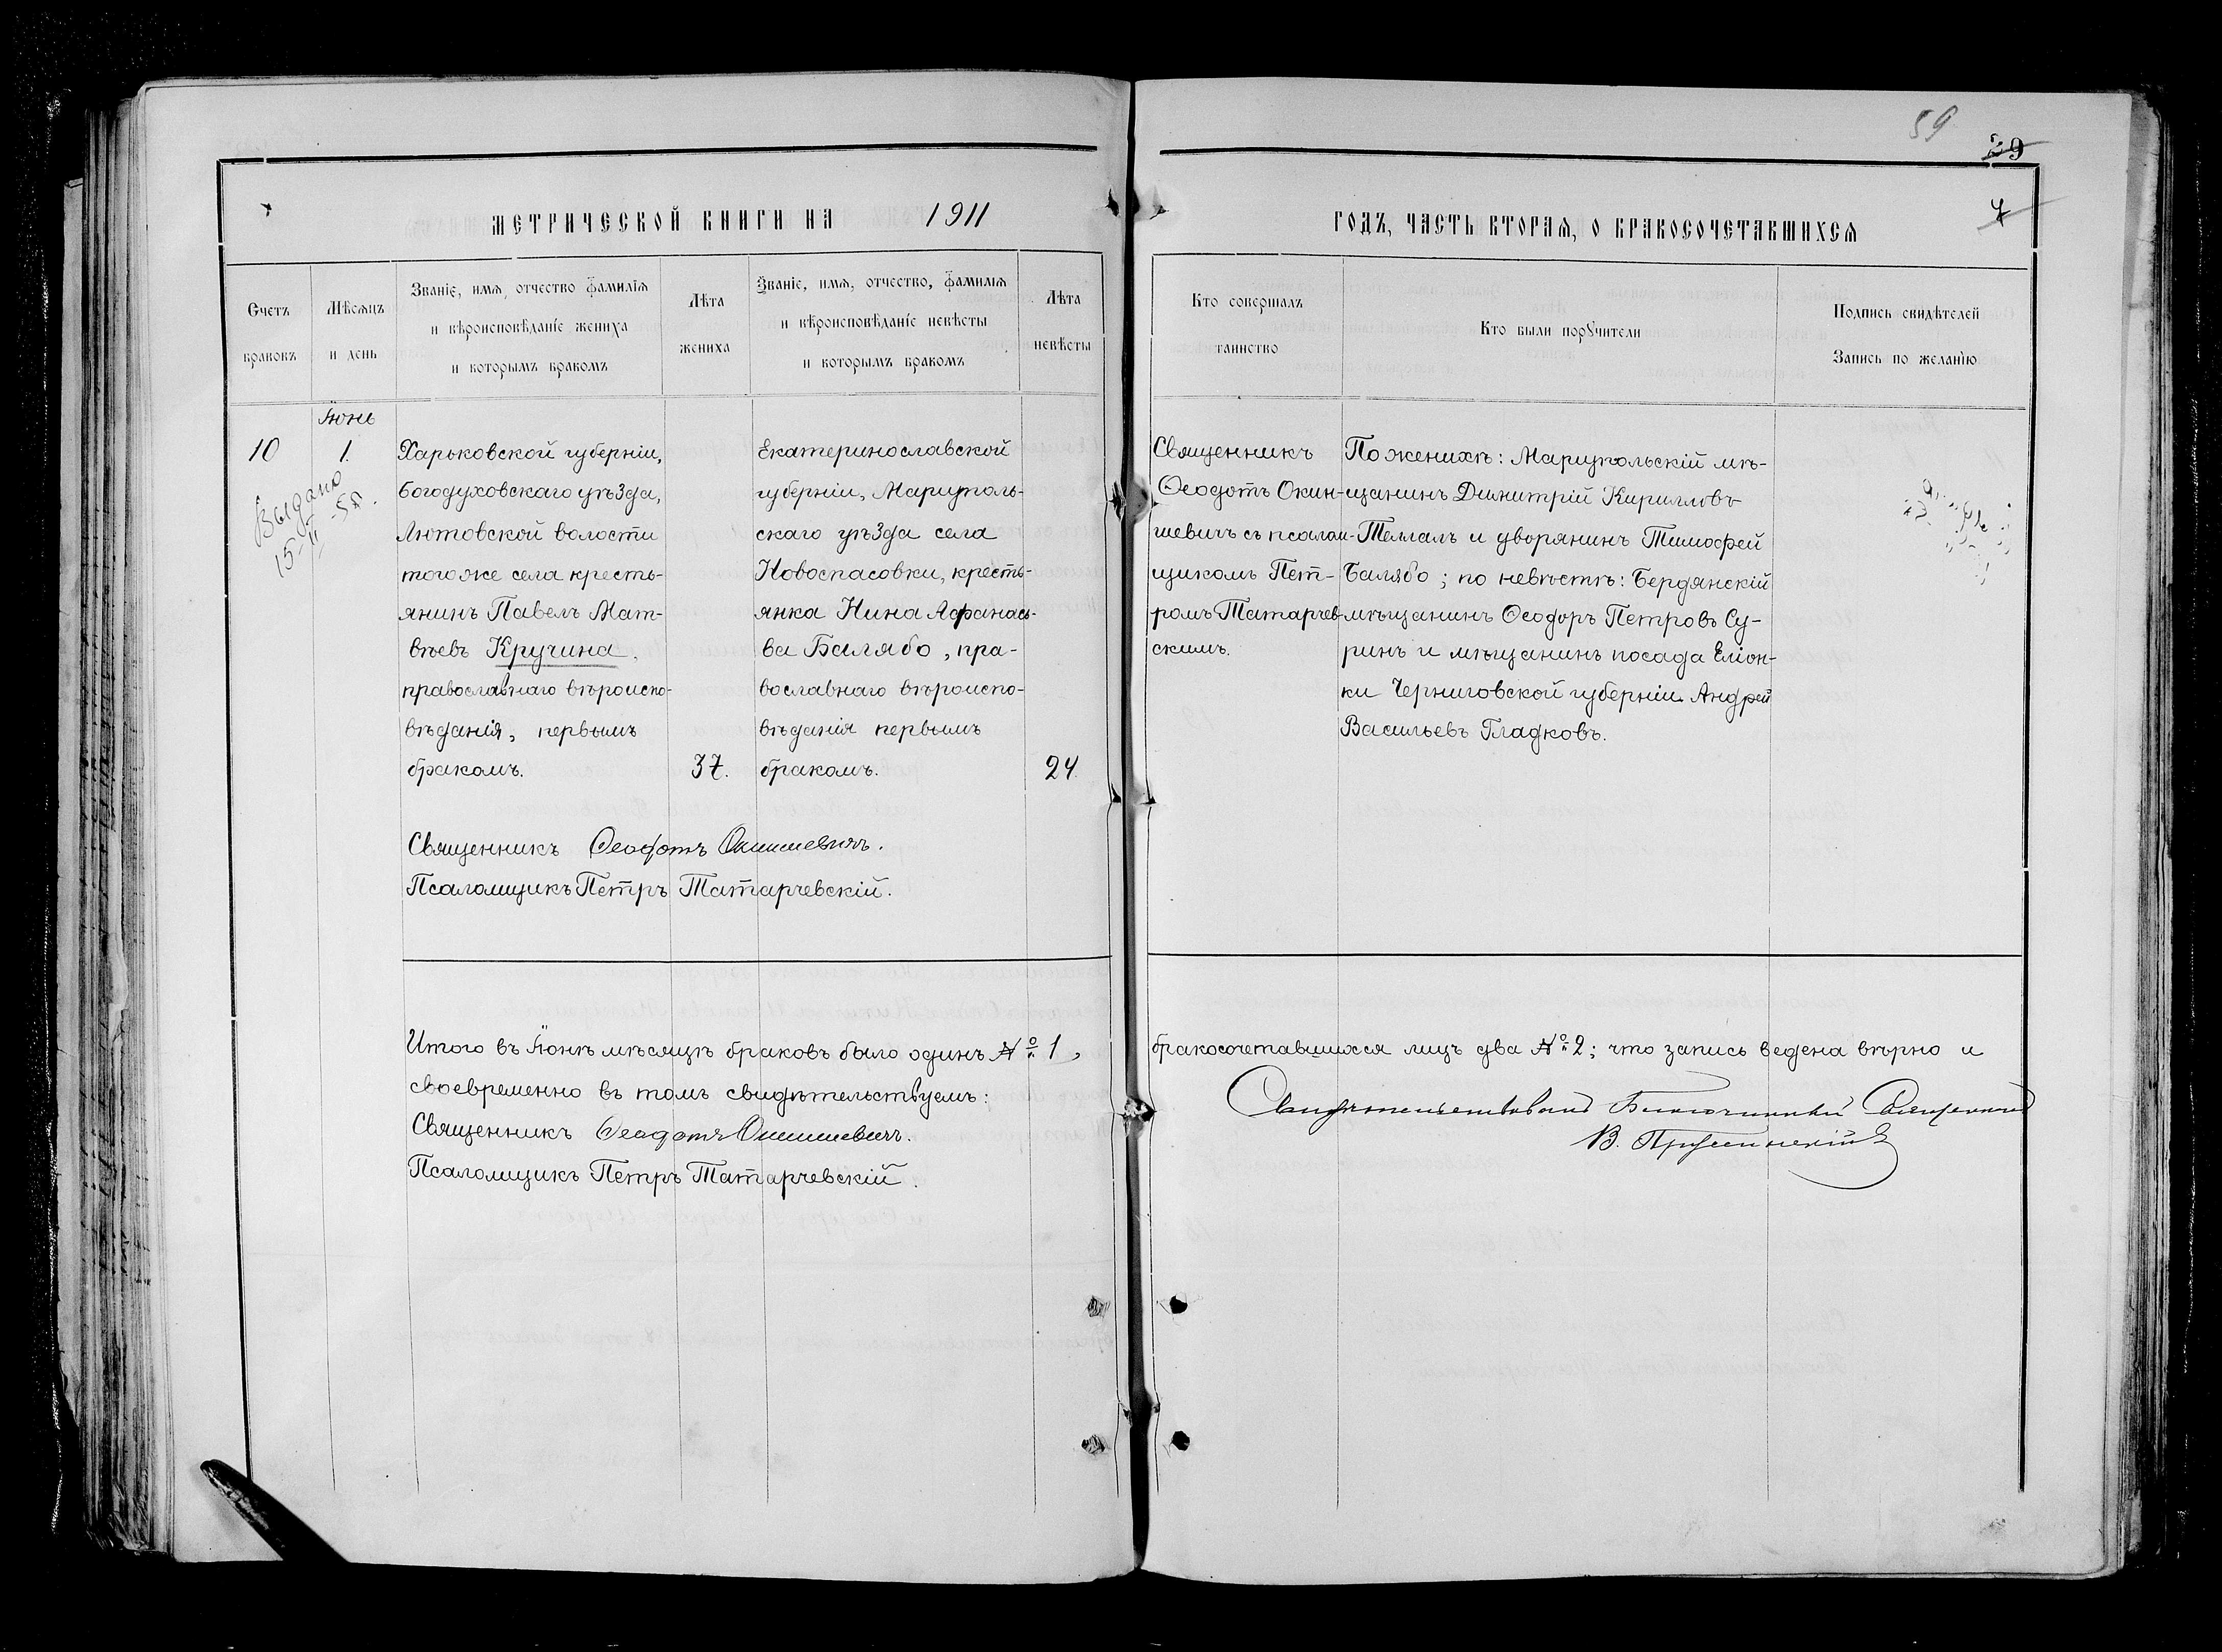 59
39
4
МЕТРИЧЕСКОЙ КНИГИ НА 1911
ГОДЪ, ЧАСТЬ ВТОРАЯ, О БРАКОСОЧЕТАВШИХСЯ
Счетъ
браковъ
Мѣсяцъ
и день
Званіе, имя, отчество фамилія
и вѣроисповѣданіе жениха
и которымъ бракомъ
Лѣта
жениха
Званіе, имя, отчество, фамилія
и вѣроисповѣданіе невѣсты
и которымъ бракомъ
Лѣта
невѣсты
Кто совершалъ
таинство
Кто были поручители
Подпись свидѣтелей
Запись по желанію
10
Выдано
15-II-58.
Іюнь
1.
Харьковской губерніи,
Богодуховскаго уѣзда,
Лютовской волости
того же села кресть-
янинъ Павелъ Мат-
вѣевъ Кручина,
православнаго вѣроиспо-
вѣданія, первымъ
бракомъ.
37.
Екатеринославской
губерніи, Маріуполь-
скаго уѣзда села
Новоспасовки, кресть-
янка Нина Афанась-
ва Балябо, пра-
вославнаго вѣроиспо-
вѣданія первымъ
бракомъ.
24.
Священникъ
Ѳеодотъ Окин-
шевичъ съ псалом-
щикомъ Пет-
ромъ Татарчев-
скимъ.
По женихѣ: Маріупольскій мѣ-
щанинъ Димитрій Кирилловъ
Темгалъ и дворянинъ Тимофей
Балябо; по невѣстѣ: Бердянскій
мѣщанинъ Ѳеодоръ Петровъ Су-
ринъ и мѣщанинъ посада Еліон-
ки Черниговской губерніи Андрей
Васильевъ Гладковъ.
Священникъ Ѳеодотъ Окиншевичъ.
Псаломщикъ Петръ Татарчевскій.
Итого въ Іюнѣ мѣсяцѣ браковъ было одинъ № 1,
своевременно въ томъ свидѣтельствуемъ:
Священникъ Ѳеодотъ Окиншевичъ.
Псаломщикъ Петръ Татарчевскій.
бракосочетавшихся лицъ два № 2; что запись ведена вѣрно и
Свидѣтельствовалъ Благочинный Священникъ
В.